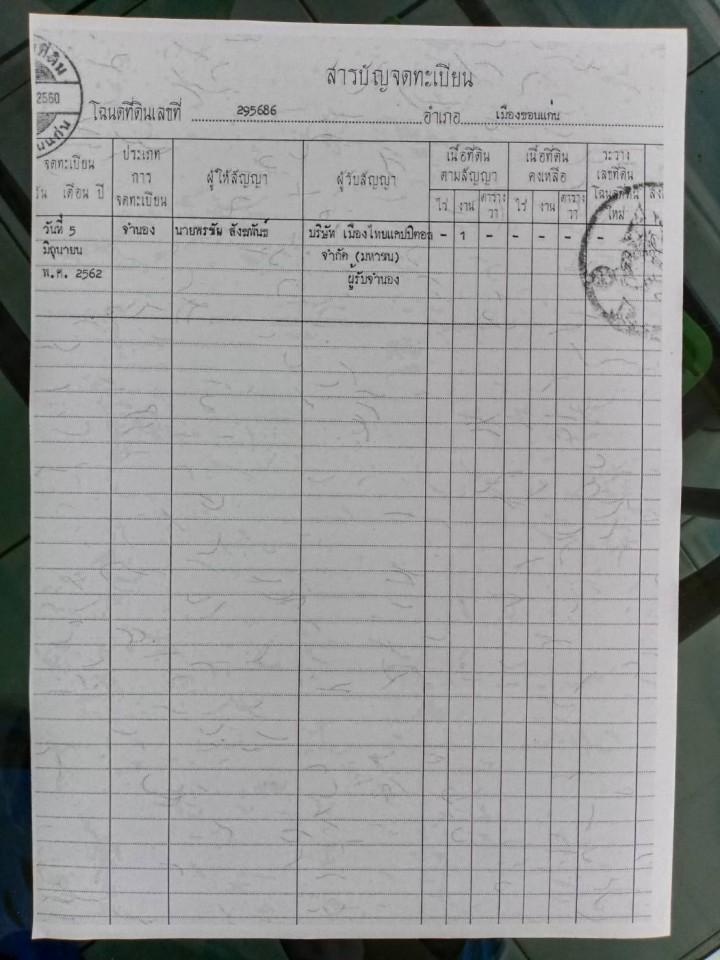 สารบัญจดทะเบียน
2560
โฉนดที่ดินเลขที่ 295686 อำเภอ เมืองขอนแก่น
จดทะเบียน
วัน เดือน ปี
ประเภท
การ
จดทะเบียน
ผู้ให้สัญญา
ผู้รับสัญญา
เนื้อที่ดิน
ตามสัญญา
ไร่ งาน ตาราง
วา
เนื้อที่ดิน
คงเหลือ
ไร่ งาน ตาราง
วา
ระวาง
เลขที่ดิน
โฉนดที่ดิน
ใหม่
วันที่ 5 จำนอง บริษัท เมืองไทยแคปปิตอล - 1 - - - - -
มิถุนายน จำกัด (มหาชน)
พ.ศ. 2562 ผู้รับจำนอง